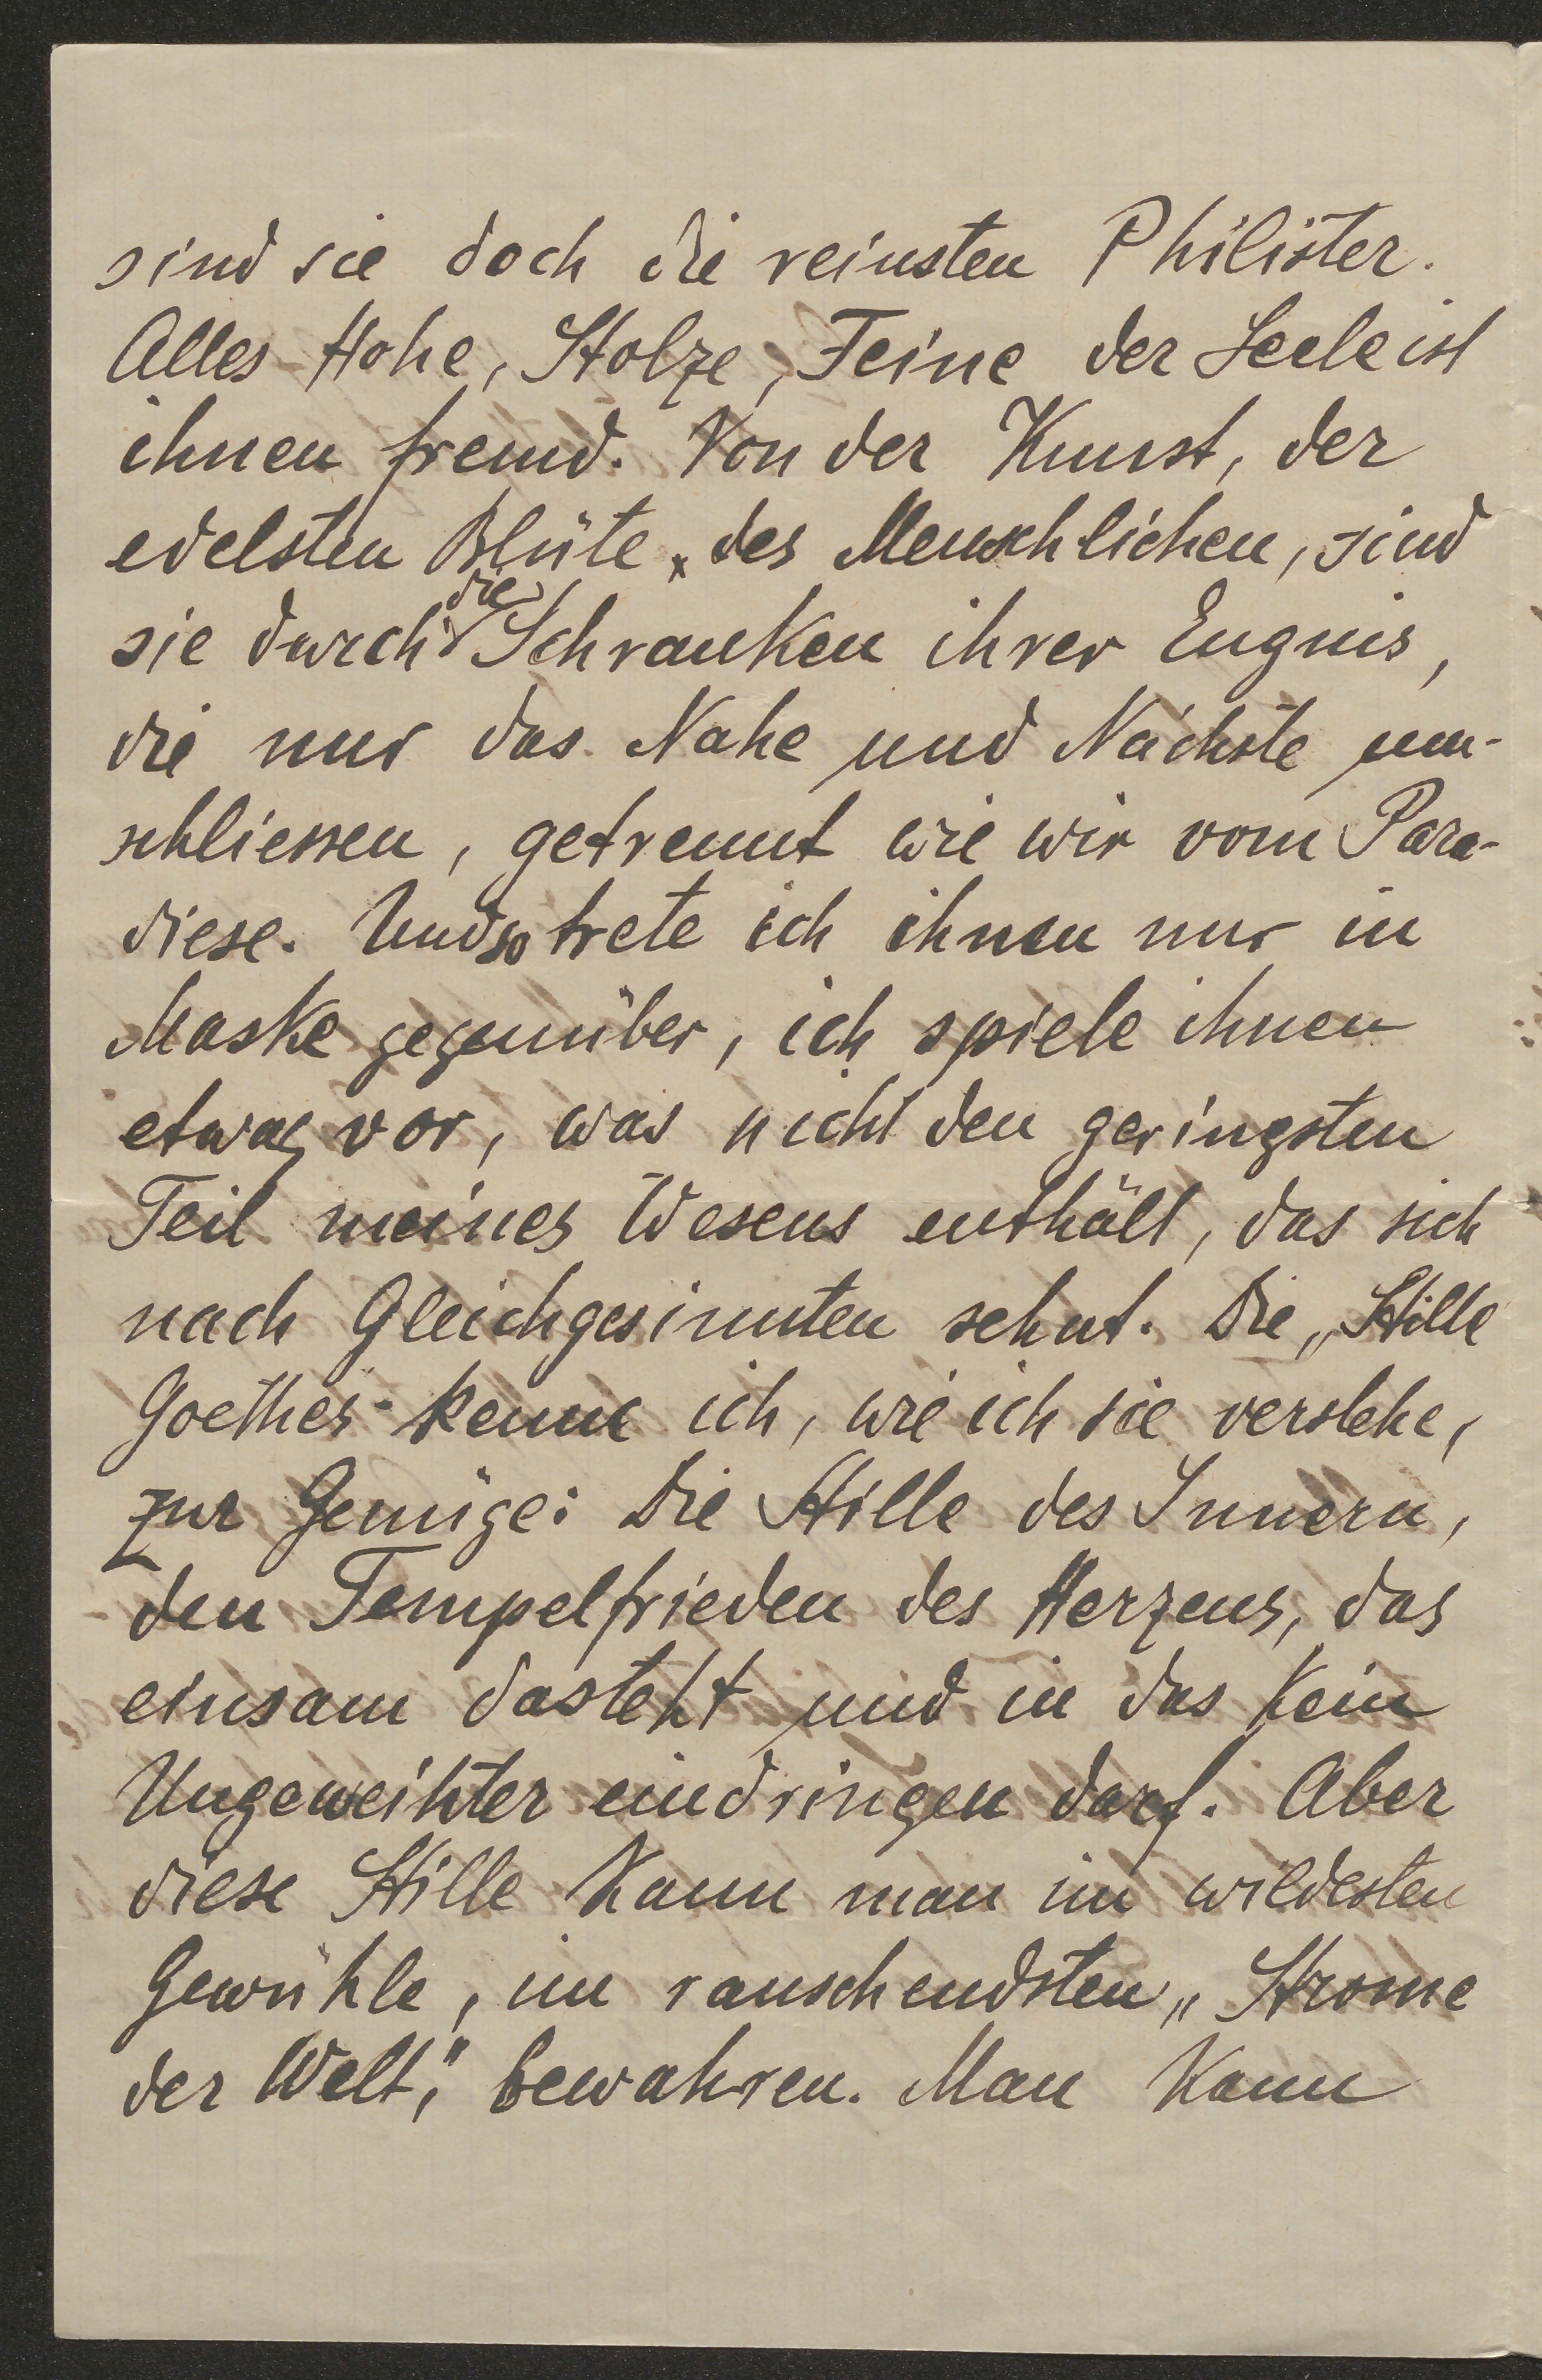 sind sie doch die reinsten Philister.
Alles Hohe, Stolze, Feine der Seele ist
ihnen fremd. Von der Kunst, der
edelsten Blüte des Menschlichen, sind
sie durch die Schranken ihrer Engnis,
die nur das Nahe und Nächste um-
schliessen, getrennt wie wir vom Para-
diese. Und so trete ich ihnen nur in
Maske gegenüber, ich spiele ihnen
etwas vor, was nicht den geringsten
Teil meines Wesens enthält, das sich
nach Gleichgesinnten sehnt. Die „Stille
Goethes" kenne ich, wie ich sie verstehe,
zur Genüge: Die Stille des Innern,
den Tempelfrieden des Herzens, das
einsam dasteht und in das kein
Ungeweihter eindringen darf. Aber
diese Stille kann man im wildesten
Gewühle, im rauschendsten „Strome
der Welt," bewahren. Man kann